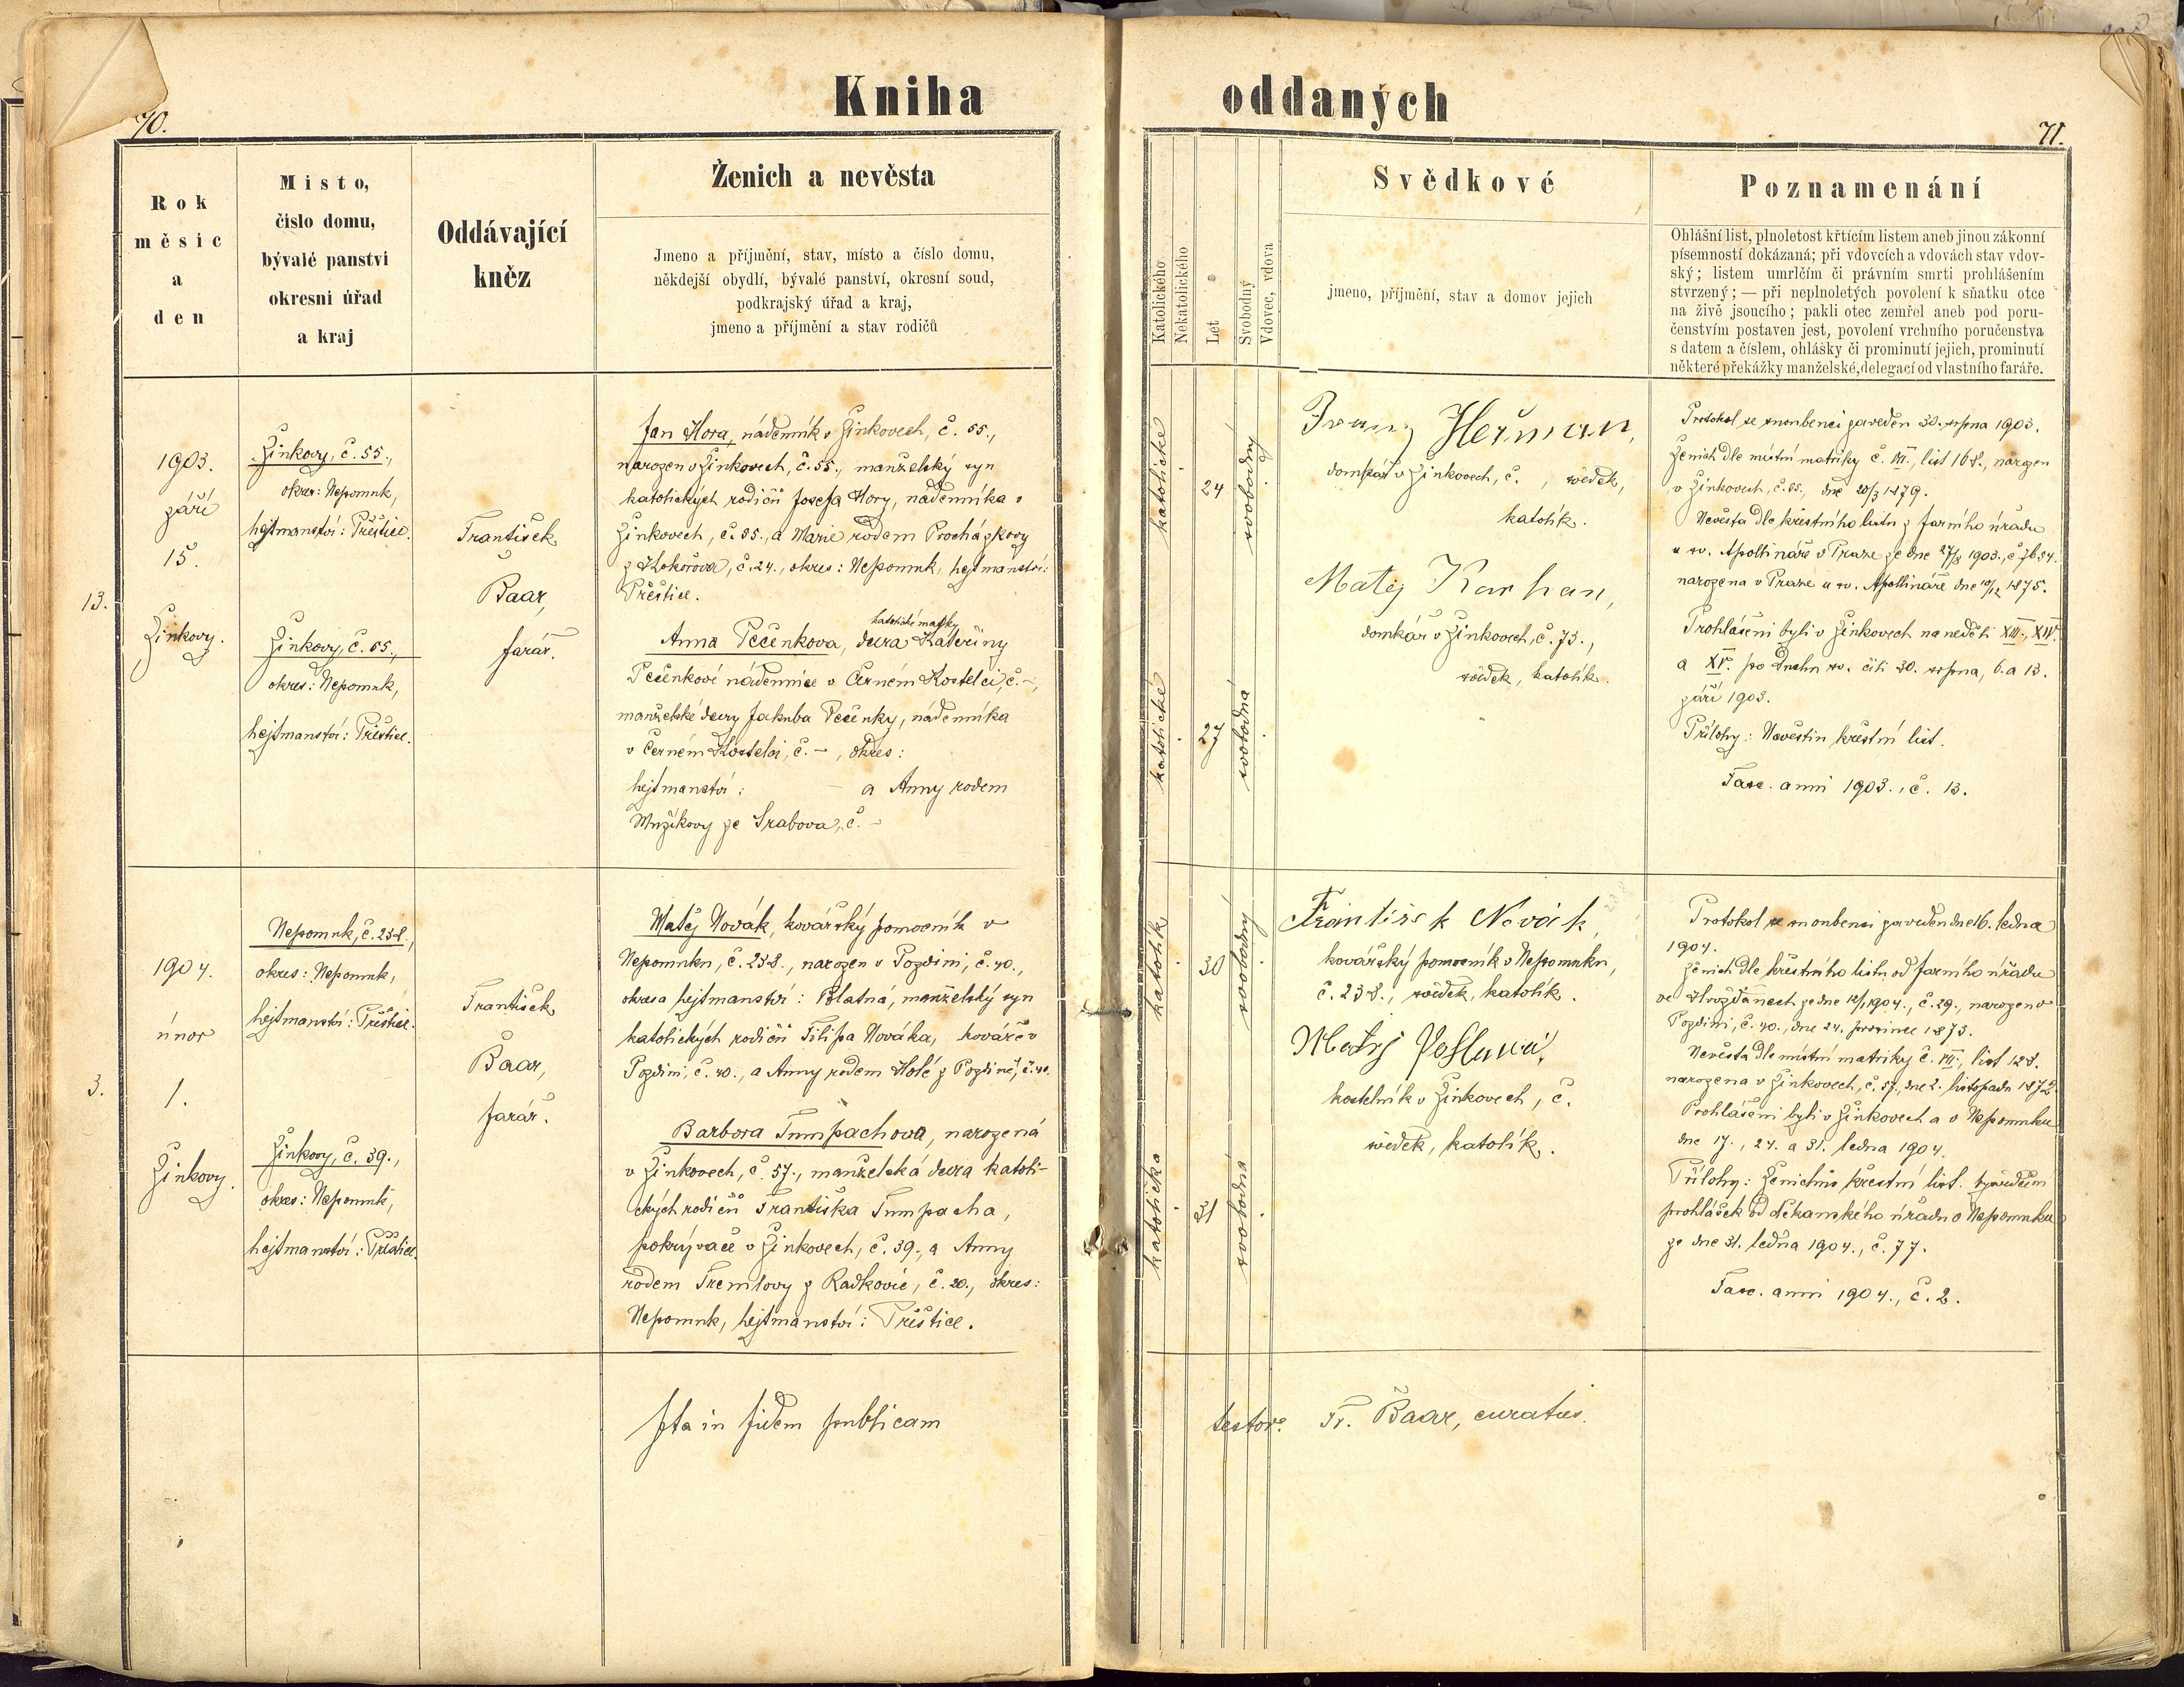 Kniha
70.
Rok
měsíc
a
den
Místo,
číslo domu,
bývalé panství
okresní úřad
a kraj
Oddávající
kněz
Ženich a nevěsta
Jmeno a příjmění, stav, místo a číslo domu,
někdejší obydlí, bývalé panství, okresní soud,
podkrajský úřad a kraj,
jmeno a příjmění a stav rodičů
13.
1903.
září
15.
Žinkovy.
Žinkovy, č. 55.,
okres: Nepomuk,
hejtmanství: Přeštice.
Žinkovy, č. 55.,
okres: Nepomuk,
hejtmanství: Přeštice.
František
Baar,
farář.
Jan Hora, nádenník v Žinkovech, č. 55.,
narozen v Žinkovech, č. 55., manželský syn
katolických rodičů Josefa Hory, nádenníka v
Žinkovech, č. 55., a Marie rodem Procházkovy
z Kokořova, č. 24., okres: Nepomuk, hejtmanství:
Přeštice.
katolické matky
Anna Pečenkova, dcera Kateřiny
Pečenkové nádennice v Černém Kostelci, č. –,
manželské dcery Jakuba Pečenky, nádenníka
v Černém Kostelci, č. –, okres:
hejtmanství: – a Anny rodem
Mužíkovy ze Srabova, č. –
3.
1904.
únor
1.
Žinkovy.
Nepomuk, č. 238.,
okres: Nepomuk,
hejtmanství: Přeštice.
Žinkovy, č. 39.,
okres: Nepomuk,
hejtmanství: Přeštice.
František
Baar,
farář.
Matěj Novák, kovářský pomocník v
Nepomuku, č. 238., narozen v Pozdini, č. 40.,
okres a hejtmanství: Blatná, manželský syn
katolických rodičů Filipa Nováka, kováře v
Pozdini, č. 40., a Anny rodem Holé z Pozdině, č. 40.
Barbora Tumpachova, narozená
v Žinkovech, č. 57., manželská dcera katoli-
ckých rodičů Františka Tumpacha,
pokrývače v Žinkovech, č. 39., a Anny
rodem Tremlovy z Radkovic, č. 20., okres:
Nepomuk, hejtmanství: Přeštice.
Ita in fidem publicam
oddaných
71.
Katolického
Nekatolického
Let
Svobodný
Vdovec, vdova
Svědkové
jmeno, příjmění, stav a domov jejich
Poznamenání
Ohlášní list, plnoletost křtícím listem aneb jinou zákonní
písemností dokázaná; při vdovcích a vdovách stav vdov-
ský; listem umrlčím či právním smrti prohlášením
stvrzený; — při neplnoletých povolení k sňatku otce
na živě jsoucího; pakli otec zemřel aneb pod poru-
čenstvím postaven jest, povolení vrchního poručenstva
s datem a číslem, ohlášky či prominutí jejich, prominutí
některé překážky manželské, delegací od vlastního faráře.
katolické
24
svobodný
katolické
27
svobodná
Heřman,
domkář v Žinkovech, č. , svědek,
katolík.
Matěj Karhan,
domkář v Žinkovech, č. 73.,
svědek, katolík.
Protokol se snoubenci zaveden 30. srpna 1903.
Ženich dle místní matriky č. VII., list 168., narozen
v Žinkovech, č. 55., dne 20/3 1879.
Nevěsta dle křestního listu z farního úřadu
u sv. Apollináře v Praze ze dne 27/8 1903., č. 7654.
narozena v Praze u sv. Apollináře dne 10/12 1875.
Prohlášeni byli v Žinkovech na neděli XIII., XIV.
a XV. po Duchu sv. čili 30. srpna, 6. a 13.
září 1903.
Přílohy: Nevěstin křestní list.
Fasc. anni 1903., č. 13.
katolík
30
svobodný
katolička
31
svobodná
František Novák,
kovářský pomocník v Nepomuku,
č. 238., svědek, katolík.
Matěj
kostelník v Žinkovech, č.
svědek, katolík.
Protokol se snoubenci zaveden dne 16. ledna
1904.
Ženich dle křestního listu od farního úřadu
ve Hvožďanech ze dne 12/1 1904., č. 29., narozen v
Pozdini, č. 40., dne 24. prosince 1873.
Nevěsta dle místní matriky č. VII., list 128.
narozena v Žinkovech, č. 57., dne 2. listopadu 1872.
Prohlášeni byli v Žinkovech a v Nepomuku
dne 17., 24. a 31. ledna 1904.
Přílohy: Ženichův křestní list. Vysvědčení
prohlášek od děkanského úřadu v Nepomuku
ze dne 31. ledna 1904., č. 77.
Fasc. anni 1904., č. 2.
testor: Fr. Baar, curatus.